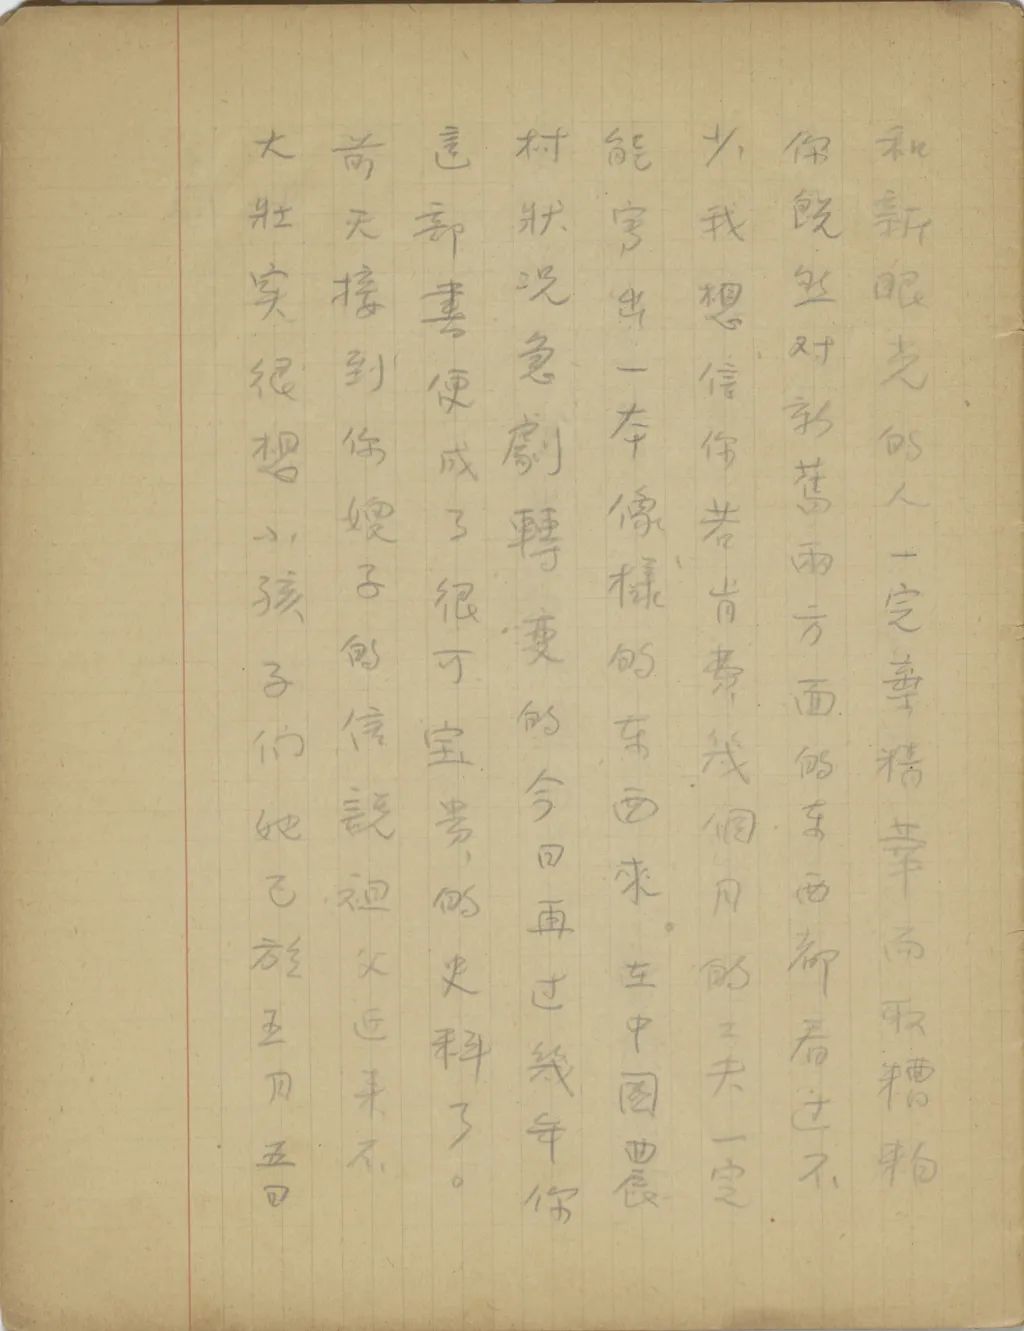 和新眼光的人一定弃精华而取糟粕
你既然对新舊兩方面的东西都看过不
少我想信你若肯费幾個月的工夫一定
能寫出一本像樣的东西來。在中國農
村狀况急劇轉变的今日再过幾年你
這部書便成了很可宝贵的史料了。
前天接到你嫂子的信説祖父近来不
大壯实很想小孩子们她已於五月五日